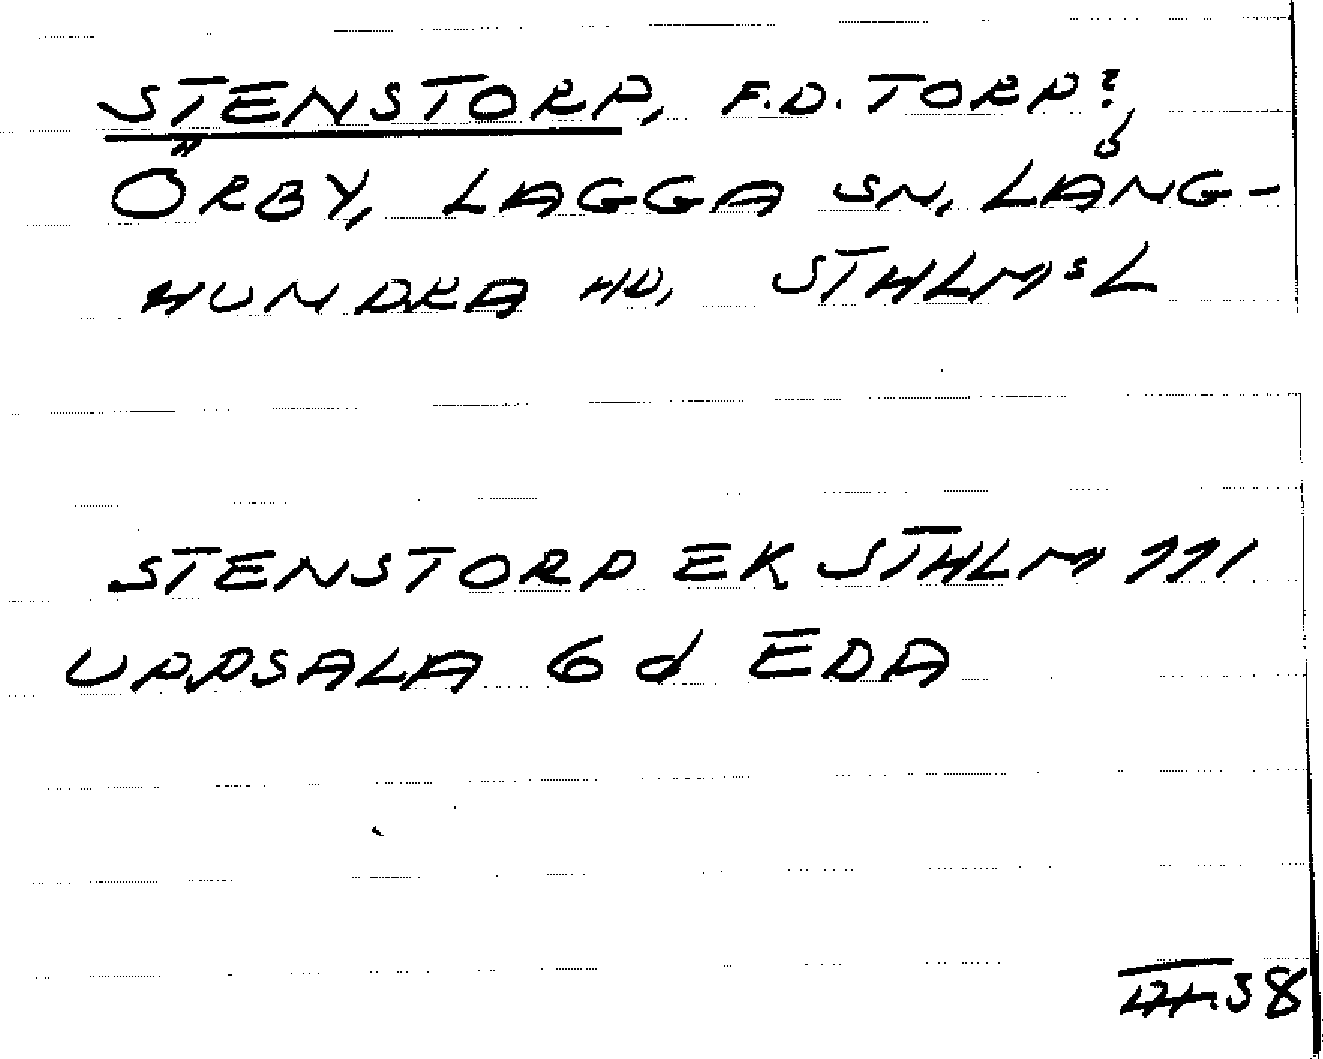 STENSTORP, F.D. TORP?
ÖRBY, LAGGA SN, LÅNG-
HUNDRA HD, STHLMSL
STENSTORP EK STHLM 111
UPPSALA 6 d EDA